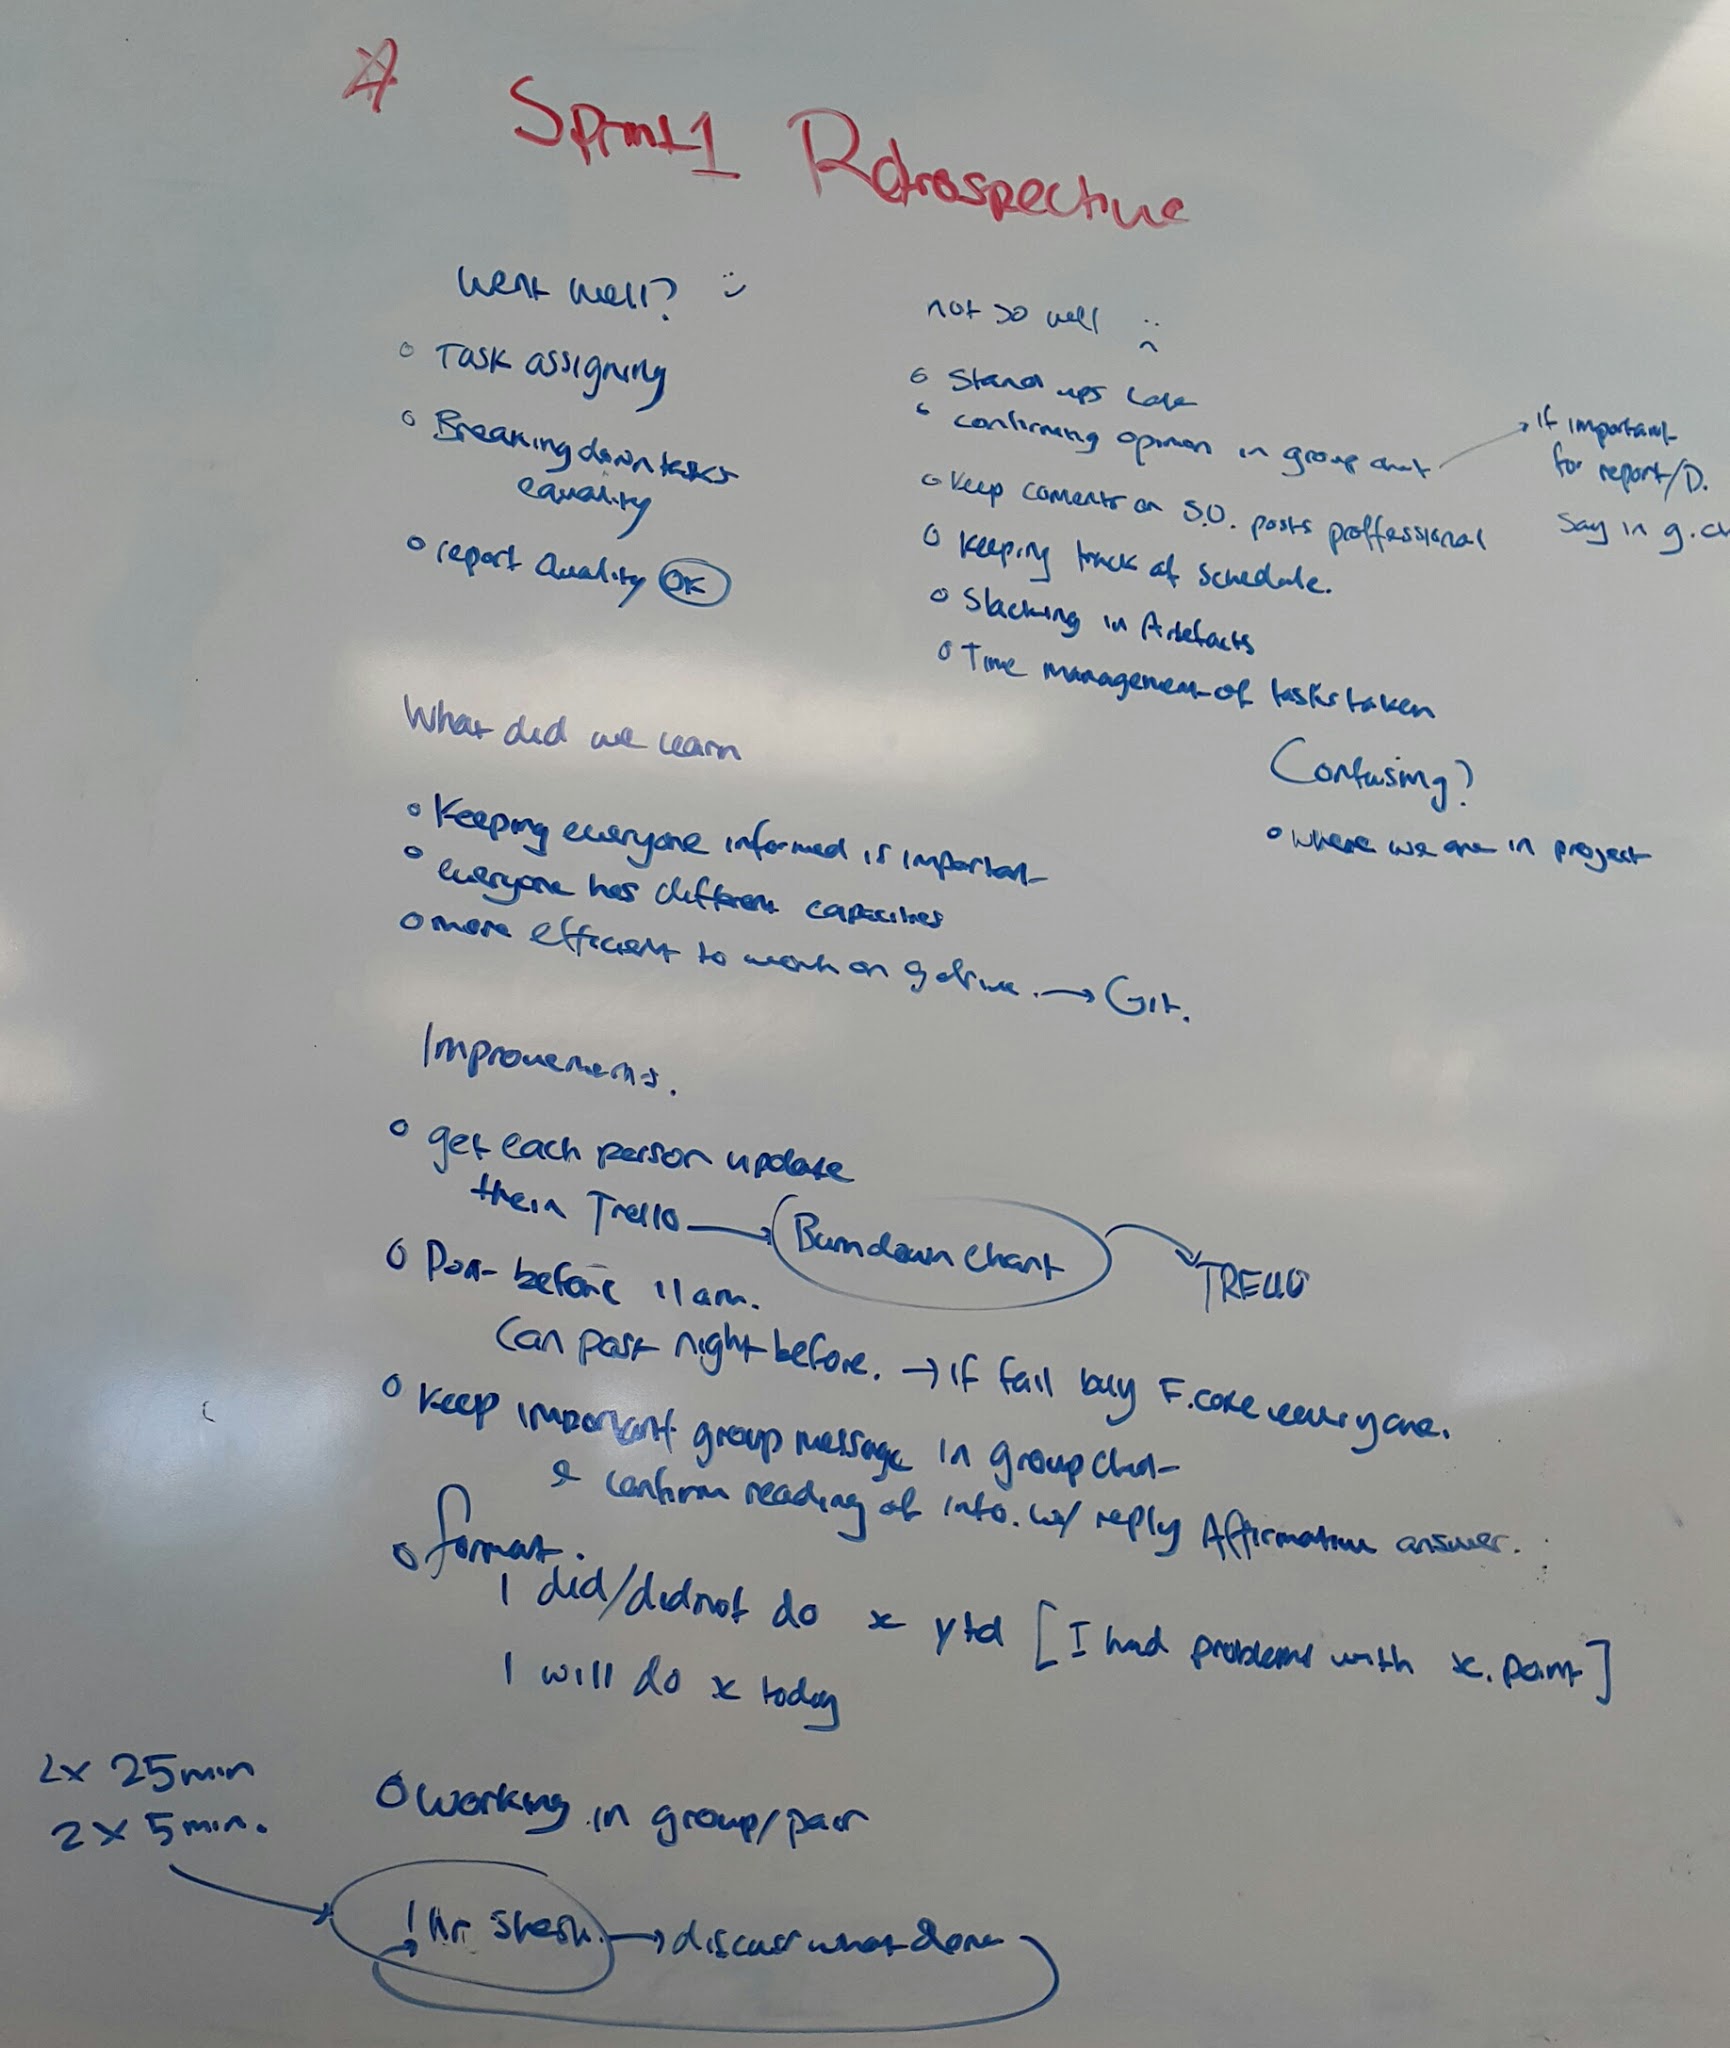 Sprint 1 Retrospective
Went well?
o Task assigning
o Breaking down tasks
equality
o report Quality OK
not so well
o Stand ups late
o confirming opinion in group chat → If important
for report/D.
Say in g.ch
o Keep coments on S.O. posts proffessional
o Keeping track of schedule.
o Slacking in Artefacts
o Time management of tasks taken
What did we learn
o Keeping everyone informed is important
o everyone has different capacities
o more efficient to work on g drive. → Git.
Confusing?
o where we are in project
Improvements.
o get each person update
their Trello → Burndown Chart → TRELLO
o Post before 11am.
Can post night before. → if fail buy F.coke everyone.
o Keep important group message in group chat
& confirm reading of info. w/ reply Affirmative answer.
o format.
I did/didnot do x ytd [I had problems with x. point]
I will do x today
2x 25min
2 x 5min.
o Working in group/pair
1 hr → discuss what done